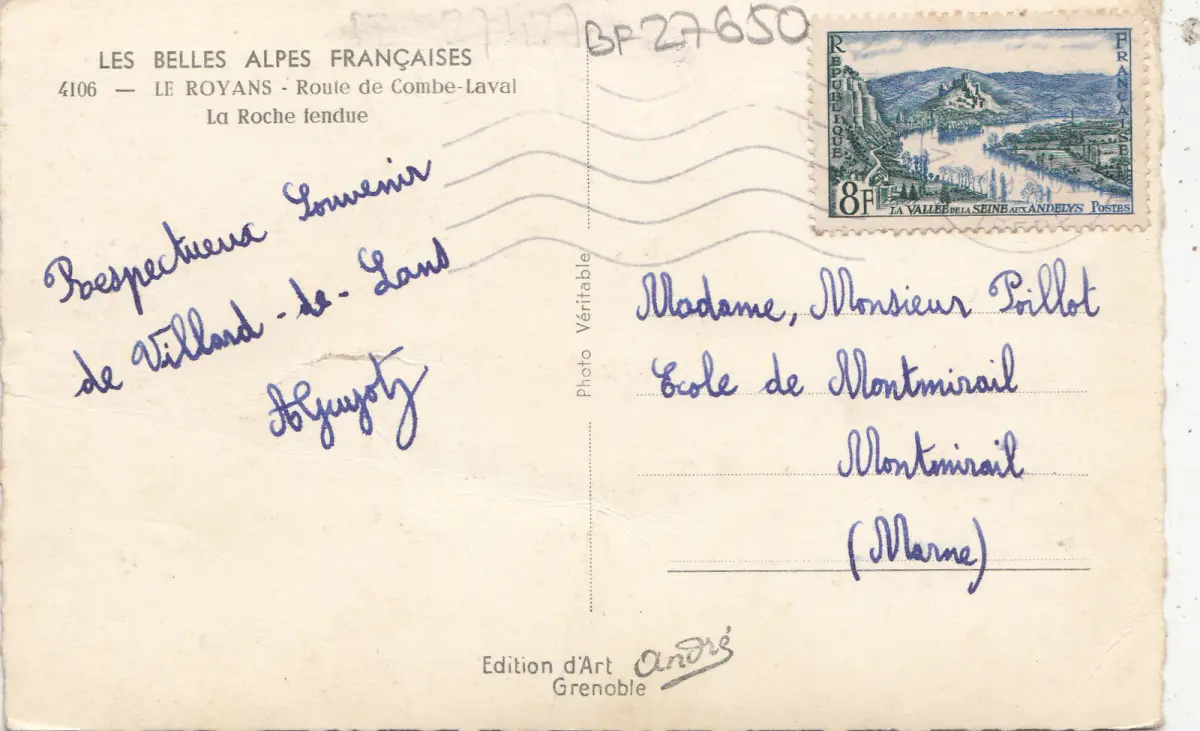 BF 27650
LES BELLES ALPES FRANÇAISES
4106 — LE ROYANS - Route de Combe-Laval
La Roche fendue
Respectueux Souvenir
de Villard-de-Lans
AGuyot
Photo Véritable
RÉPUBLIQUE
FRANÇAISE
8F
LA VALLÉE DE LA SEINE AUX ANDELYS POSTES
Madame, Monsieur Poillot
Ecole de Montmirail
Montmirail
(Marne)
Edition d'Art André
Grenoble